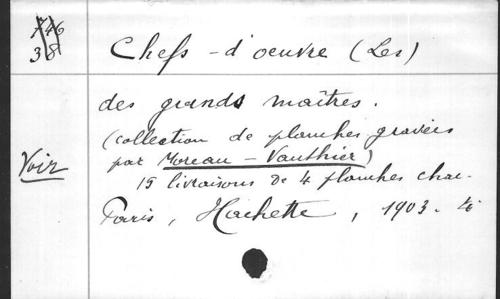 746
38
Chefs-d'oeuvre (Les)
des grands maîtres.
(collection de planches gravées
par Moreau-Vauthier)
Voir
15 livraisons de 4 planches chac.
Paris, Hachette, 1903.